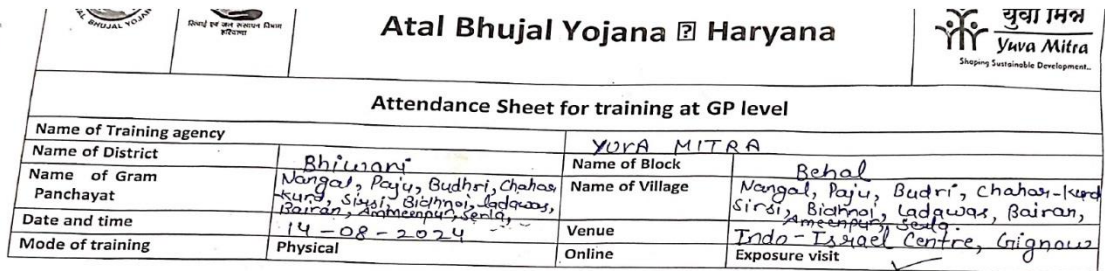 ATAL BHUJAL YOJANA
सिंचाई एवं जल संसाधन विभाग
हरियाणा
Atal Bhujal Yojana ⍰ Haryana
युवा मित्र
Yuva Mitra
Shaping Sustainable Development..
Attendance Sheet for training at GP level
Name of Training agency YUVA MITRA
Name of District Bhiwani Name of Block Behal
Name of Gram Panchayat Nangal, Paju, Budhri, Chahar
-kurd, Sirsi, Bidhnoi, Ladawas,
Bairan, Ammeenpur, Serla,
Name of Village Nangal, Paju, Budri, Chahar-kurd
Sirsi, Bidhnoi, Ladawas, Bairan,
Ameenpur, Serla.
Date and time 14-08-2024 Venue Indo-Israel Centre, Gignow
Mode of training Physical Online Exposure visit ✓